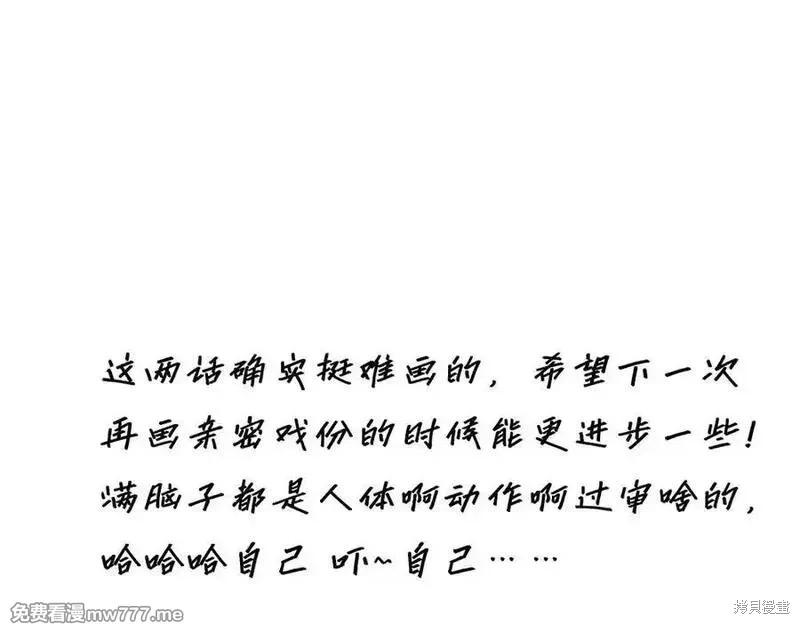 这两话确实挺难画的，希望下一次
再画亲密戏份的时候能更进步一些！
满脑子都是人体啊动作啊过审啥的，
哈哈哈自己 吓~自己……
免费看漫mw777.me
拷貝漫畫